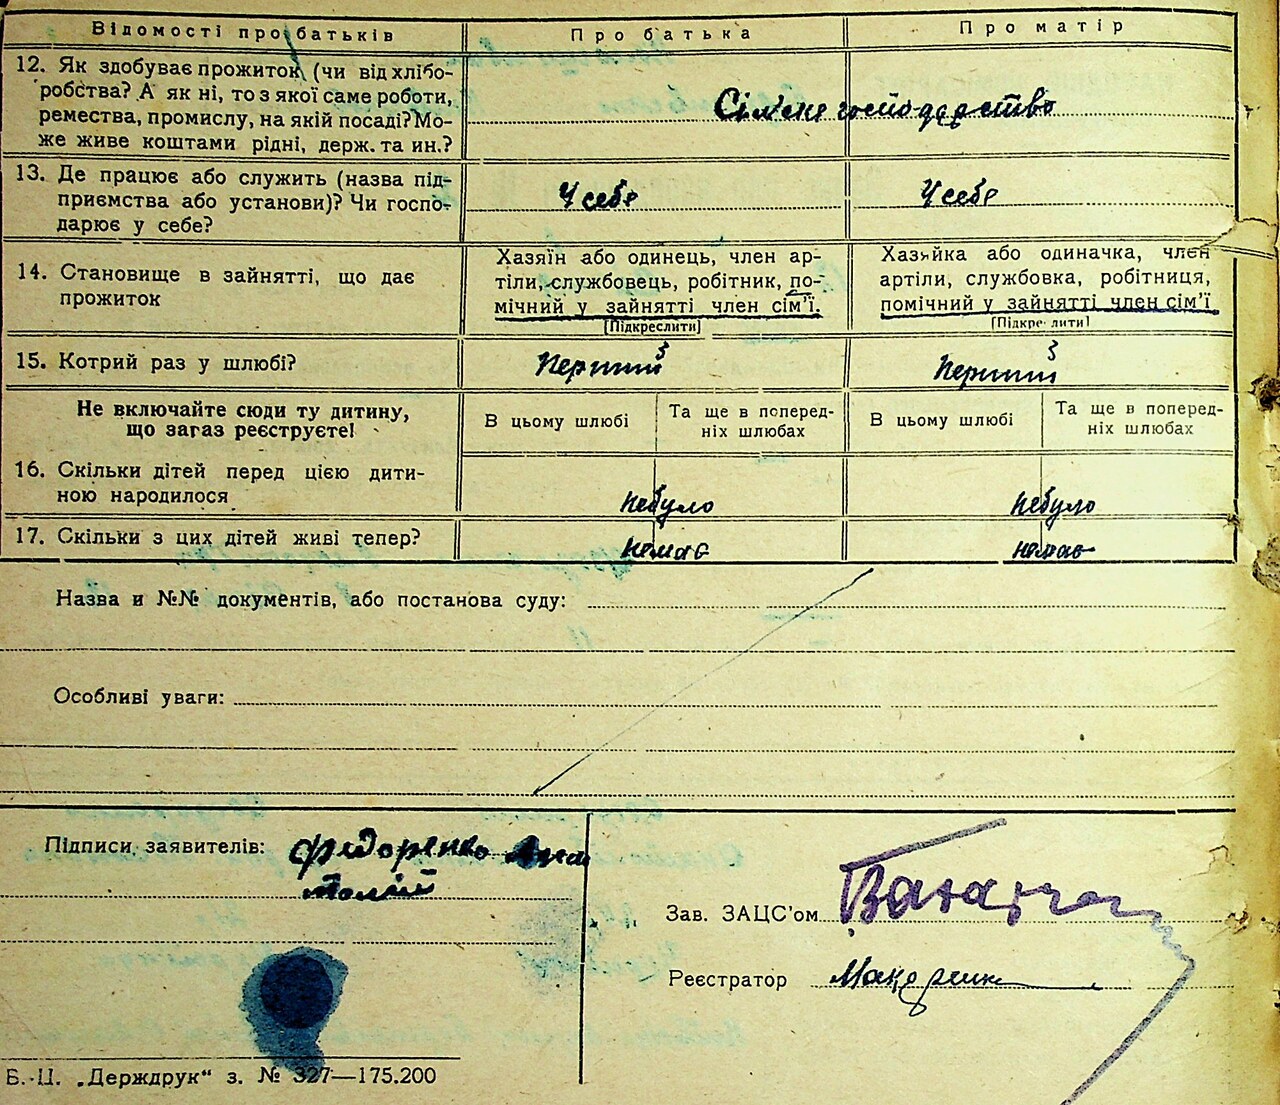 Відомості про батьків
Про батька
Про матір
12. Як здобуває прожиток (чи від хлібо-
робства? А як ні, то з якої саме роботи,
ремества, промислу, на якій посаді? Мо-
же живе коштами рідні, держ. та ин.?
Сімєне господарство
13. Де працює або служить (назва під-
приємства або установи)? Чи госпо-
дарює у себе?
У себе
У себе
14. Становище в зайнятті, що дає
прожиток
Хазяїн або одинець, член ар-
тіли, службовець, робітник, по-
мічний у зайнятті член сім’ї.
[Підкреслити]
Хазяйка або одиначка, член
артіли, службовка, робітниця,
помічний у зайнятті член сім’ї
[Підкреслити]
15. Котрий раз у шлюбі?
Перший
Перший
Не включайте сюди ту дитину,
що загаз реєструєте!
В цьому шлюбі
Та ще в поперед-
ніх шлюбах
В цьому шлюбі
Та ще в поперед-
ніх шлюбах
16. Скільки дітей перед цією дити-
ною народилося
небуло
небуло
17. Скільки з цих дітей живі тепер?
немає
немає
Назва и №№ документів, або постанова суду:
Особливі уваги:
Підписи заявителів: Федоренко Ана
толій
Зав. ЗАЦС’ом
Реєстратор
Б.-Ц. „Держдрук“ з. № 327—175.200